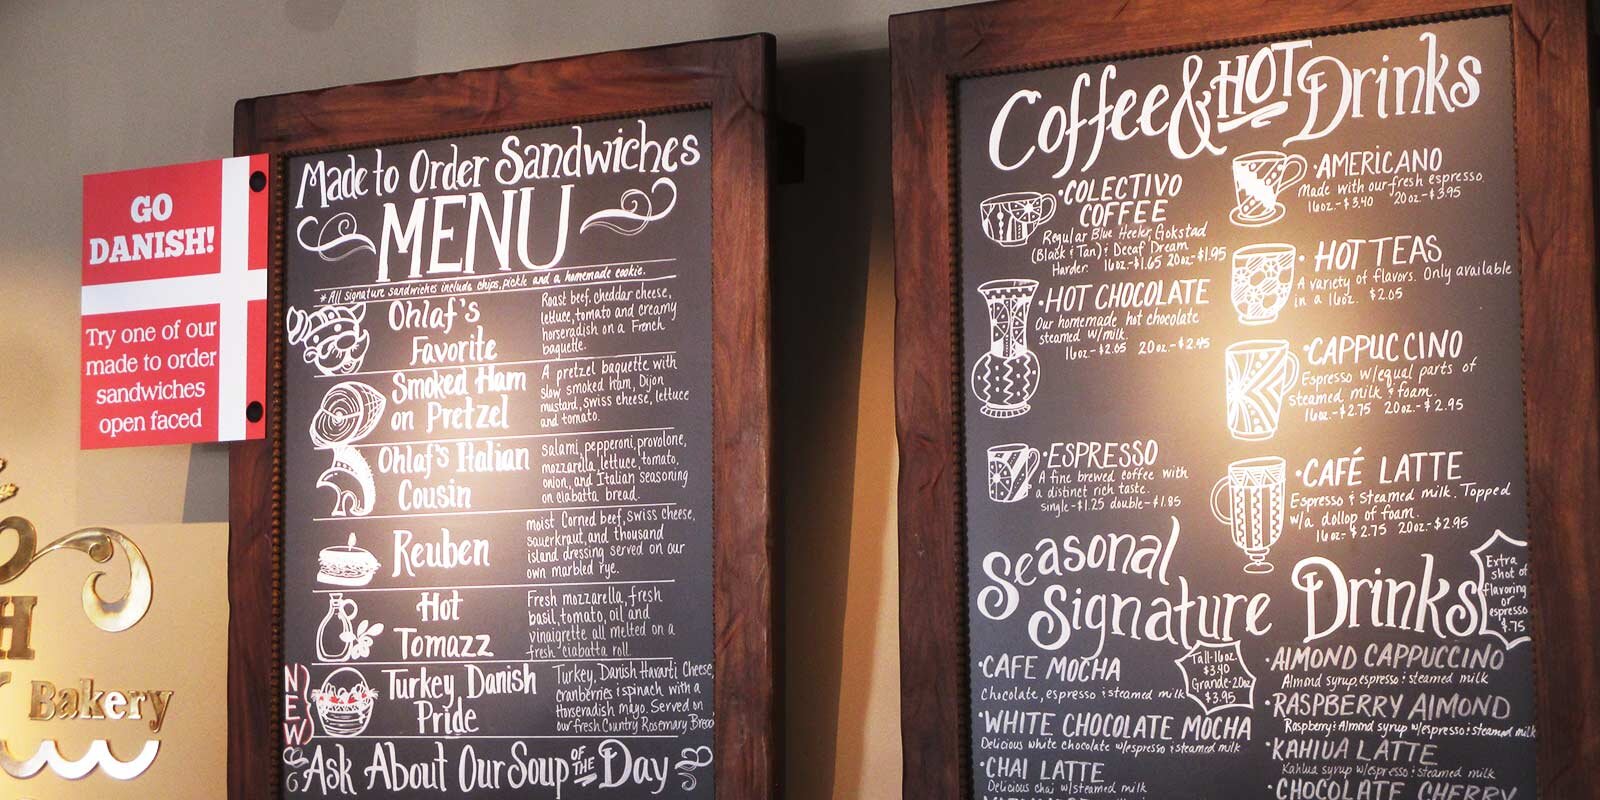 GO
DANISH!
Try one of our
made to order
sandwiches
open faced
H
Bakery
Made to Order Sandwiches
MENU
*All signature sandwiches include chips, pickle and a homemade cookie.
Ohlaf's
Favorite
Roast beef, cheddar cheese,
lettuce, tomato and creamy
horseradish on a French
baguette.
Smoked Ham
on Pretzel
A pretzel baguette with
slow smoked ham, Dijon
mustard, swiss cheese, lettuce
and tomato.
Ohlaf's Italian
Cousin
salami, pepperoni, provolone,
mozzarella, lettuce, tomato,
onion, and Italian seasoning
on ciabatta bread.
Reuben
moist Corned beef, swiss cheese,
sauerkraut, and thousand
island dressing served on our
own marbled rye.
Hot
Tomazz
Fresh mozzarella, fresh
basil, tomato, oil and
vinaigrette all melted on a
fresh ciabatta roll.
NEW
Turkey Danish
Pride
Turkey, Danish Havarti Cheese,
cranberries & spinach with a
Horseradish mayo. Served on
our fresh Country Rosemary Bread
Ask About Our Soup OF THE Day
Coffee & HOT Drinks
•COLECTIVO
COFFEE
Regular Blue Heeler, Gokstad
(Black & Tan) & Decaf Dream
Harder. 16oz.-$1.65 20oz-$1.95
•HOT CHOCOLATE
Our homemade hot chocolate
steamed w/milk.
16oz-$2.05 20oz.-$2.45
•ESPRESSO
A fine brewed coffee with
a distinct rich taste.
single-$1.25 double-$1.85
•AMERICANO
Made with our fresh espresso.
16oz.-$3.40 20oz.-$3.95
•HOT TEAS
A variety of flavors. Only available
in a 16oz. $2.05
•CAPPUCCINO
Espresso w/equal parts of
steamed milk & foam.
16oz.-$2.75 20oz.-$2.95
•CAFÉ LATTE
Espresso & steamed milk. Topped
w/a dollop of foam.
16oz-$2.75 20oz.-$2.95
Seasonal
Signature Drinks
Extra
shot of
flavoring
or
espresso
$.75
Tall-16oz.
$3.40
Grande-20oz
$3.95
•CAFE MOCHA
Chocolate, espresso & steamed milk
•WHITE CHOCOLATE MOCHA
Delicious white chocolate w/espresso & steamed milk
•CHAI LATTE
Delicious chai w/steamed milk
•ALMOND CAPPUCCINO
Almond syrup, espresso & steamed milk
•RASPBERRY ALMOND
Raspberry & Almond syrup w/espresso & steamed milk
•KAHLUA LATTE
Kahlua syrup w/espresso & steamed milk
•CHOCOLATE CHERRY